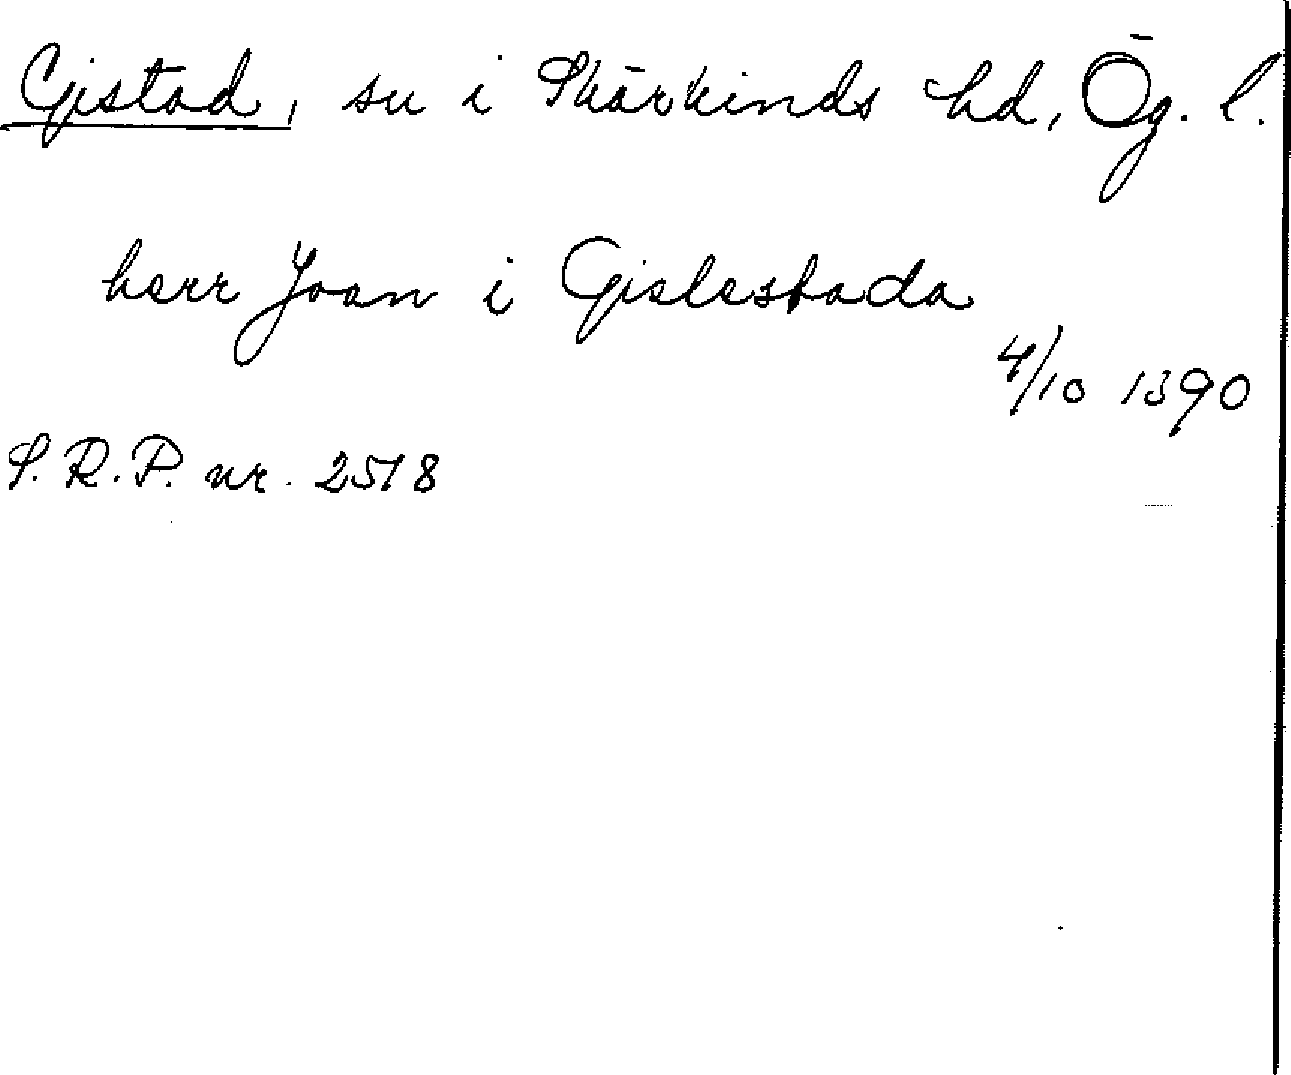 Gistad, sn i Skärkinds hd, Ög. l.
herr Joan i Gislestada
4/10 1390
S. R. P. nr. 2518